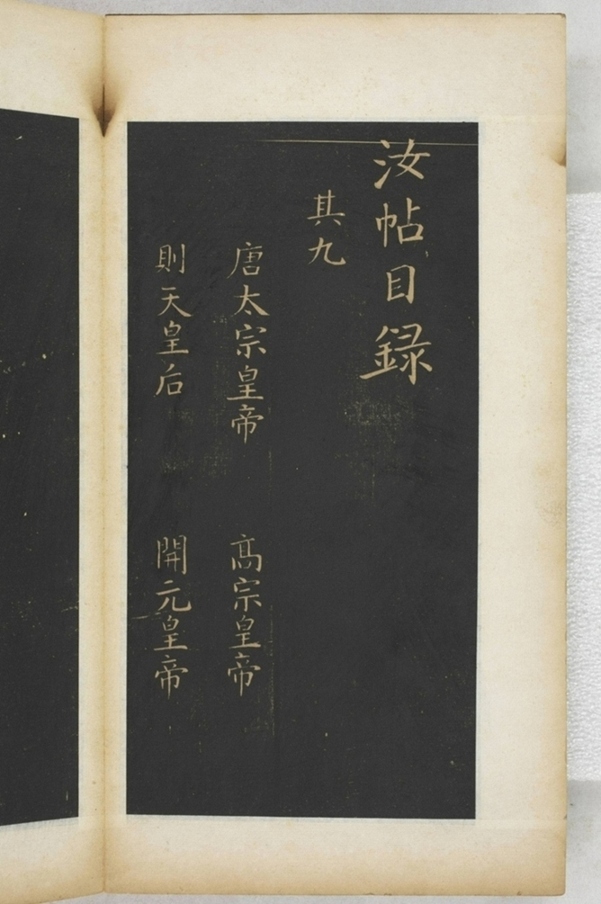 汝帖目録
其九
唐太宗皇帝 髙宗皇帝
則天皇后 開元皇帝